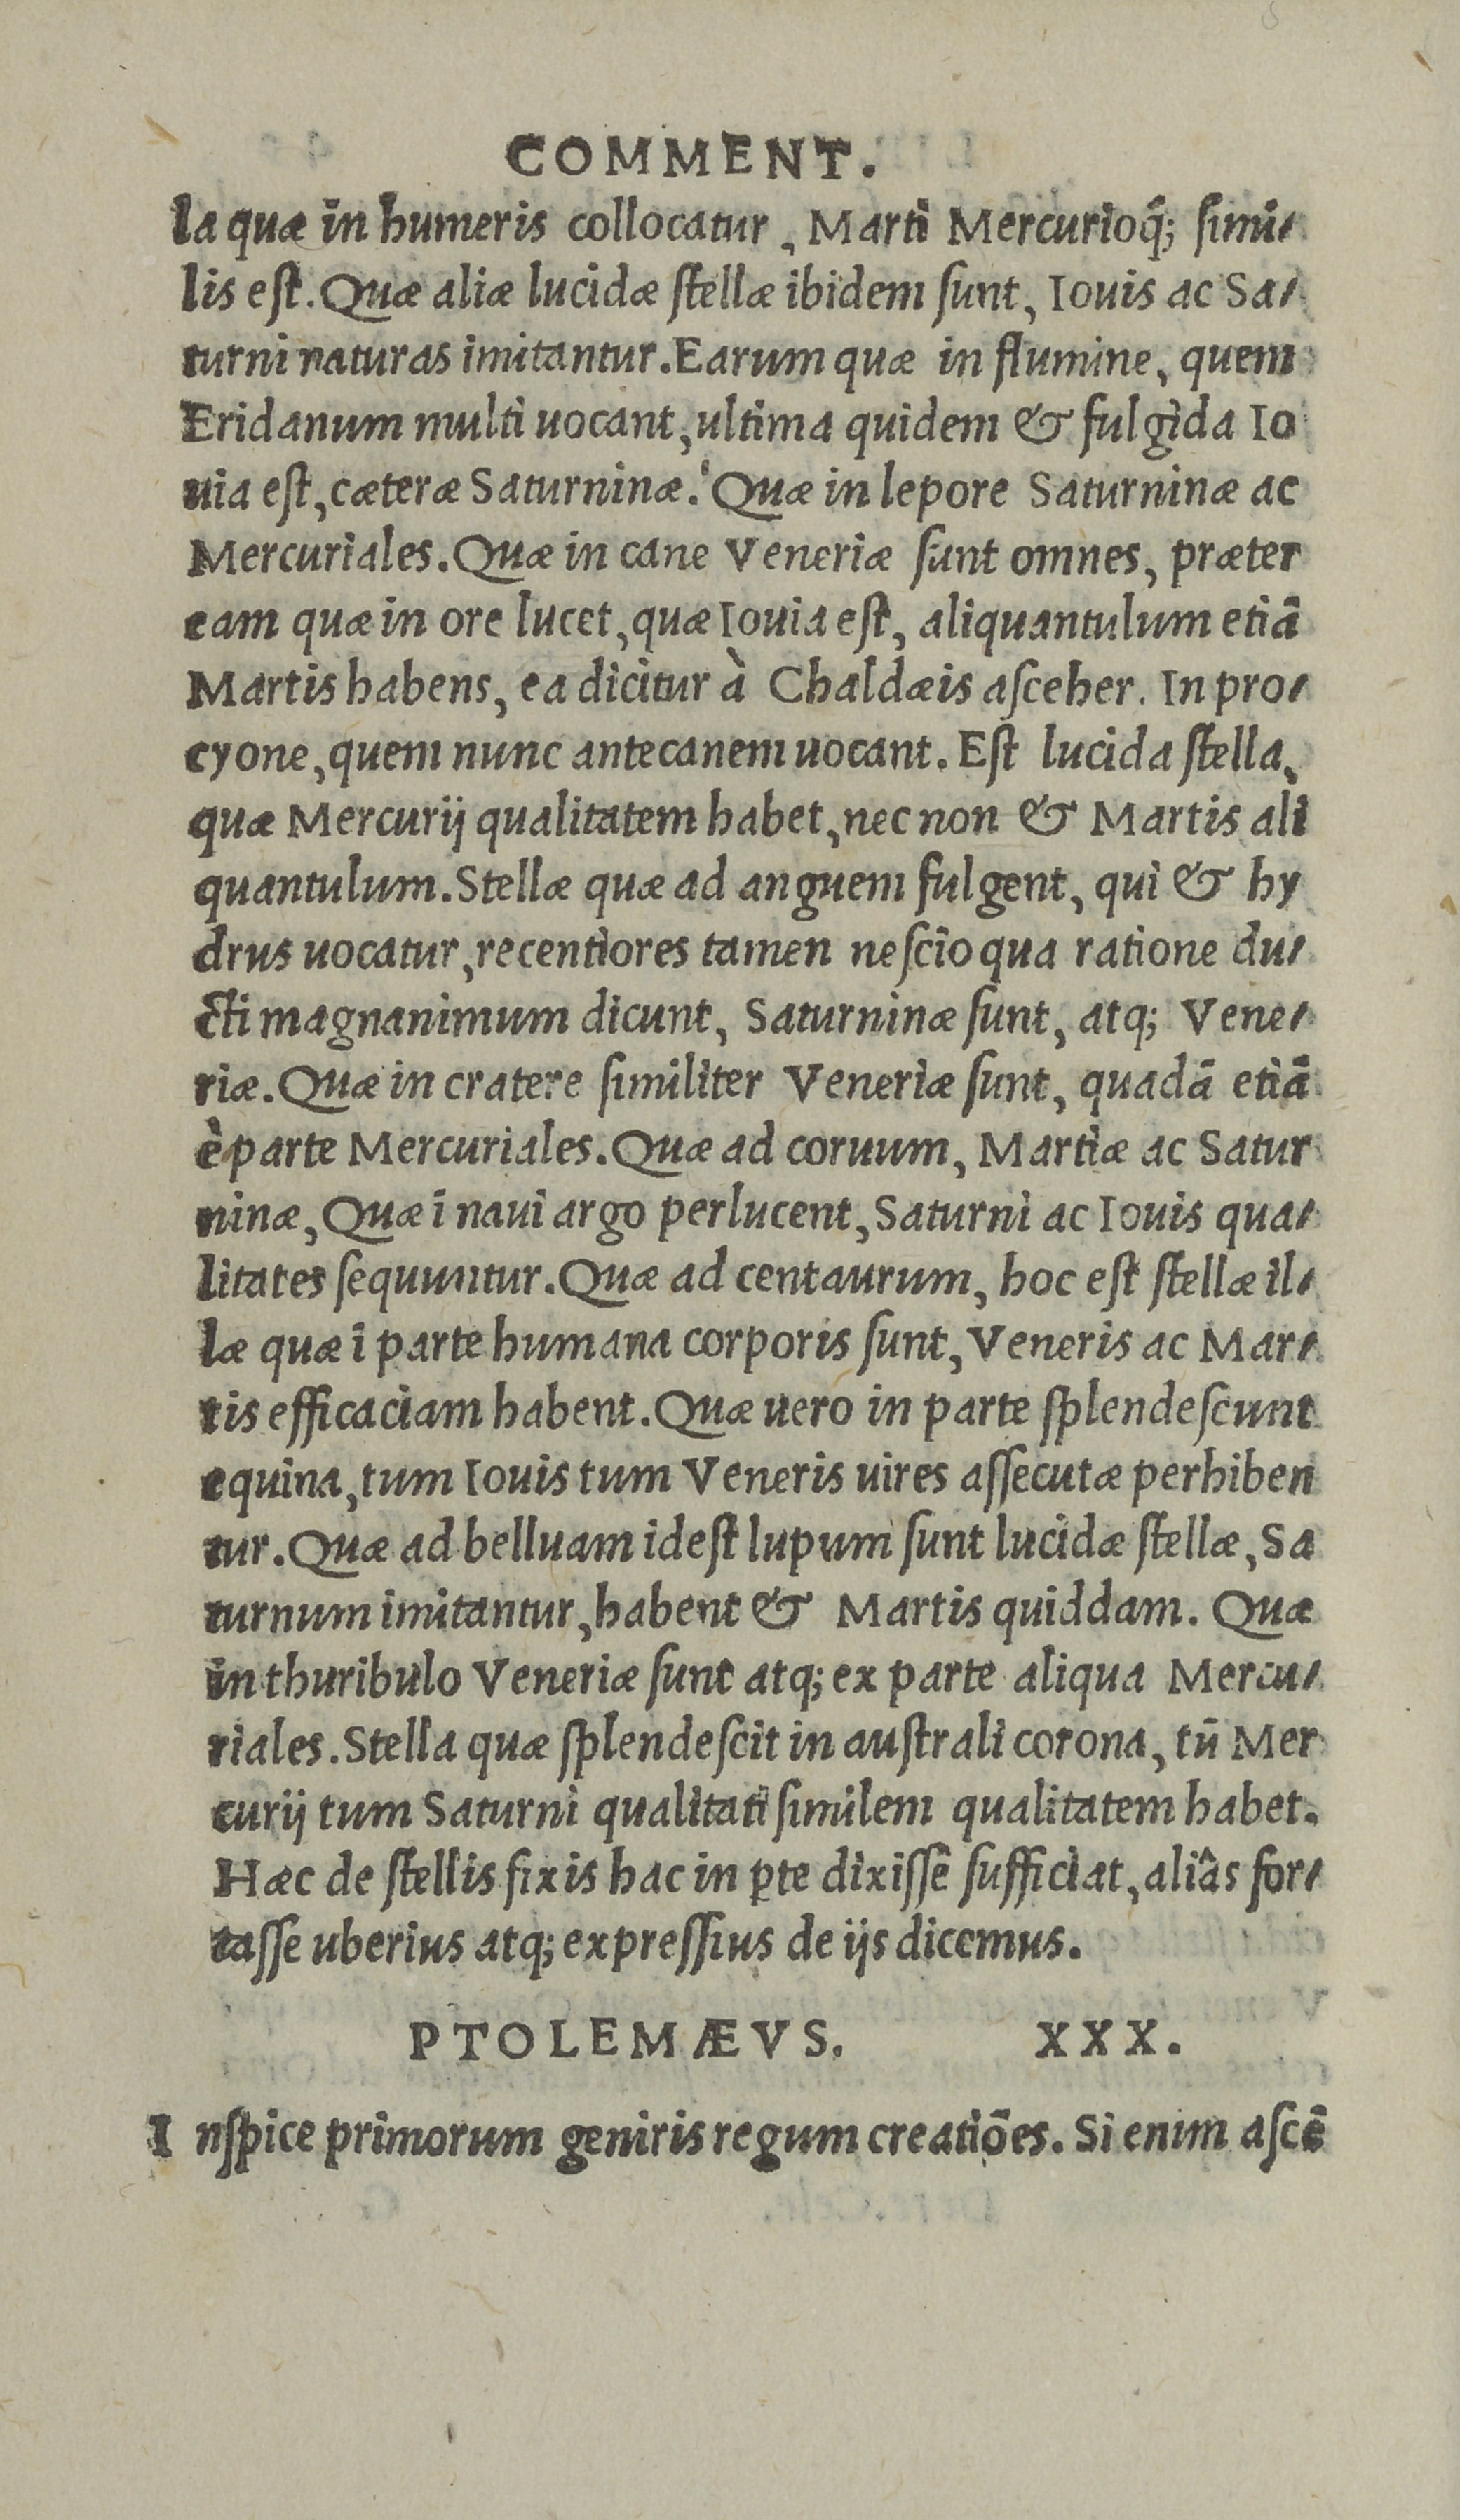 COMMENT.
la quæ in humeris collocatur, Marti Mercurioq̃; simi-
lis est. Quæ aliæ lucidæ stellæ ibidem sunt, Iouis ac Sa-
turni naturas imitantur. Earum quæ in flumine, quem
Eridanum multi uocant, ultima quidem & fulgida Io
uia est, cæteræ Saturninæ. Quæ in lepore Saturninæ ac
Mercuriales. Quæ in cane Veneriæ sunt omnes, præter
eam quæ in ore lucet, quæ Iouia est, aliquantulum etiã
Martis habens, ea dicitur à Chaldæis asceher. In pro-
cyone, quem nunc antecanem uocant. Est lucida stella,
quæ Mercurij qualitatem habet, nec non & Martis ali
quantulum. Stellæ quæ ad anguem fulgent, qui & hy
drus uocatur, recentiores tamen nescio qua ratione du-
cti magnanimum dicunt, Saturninæ sunt, atq; Vene-
riæ. Quæ in cratere similiter Veneriæ sunt, quadã etiã
è parte Mercuriales. Quæ ad coruum, Martiæ ac Satur
ninæ, Quæ ĩ naui argo perlucent, Saturni ac Iouis qua-
litates sequuntur. Quæ ad centaurum, hoc est stellæ il-
læ quæ ĩ parte humana corporis sunt, Veneris ac Mar-
tis efficaciam habent. Quæ uero in parte splendescunt
equina, tum Iouis tum Veneris uires assecutæ perhiben
tur. Quæ ad belluam idest lupum sunt lucidæ stellæ, Sa
turnum imitantur, habent & Martis quiddam. Quæ
in thuribulo Veneriæ sunt atq; ex parte aliqua Mercu-
riales. Stella quæ splendescit in australi corona, tũ Mer
curij tum Saturni qualitati similem qualitatem habet.
Hæc de stellis fixis hac in ꝑte dixisse sufficiat, aliâs for-
tasse uberius atq; expressius de ijs dicemus.
PTOLEMÆVS. XXX.
Inspice primorum geniris regum creatiões. Si enim ascẽ